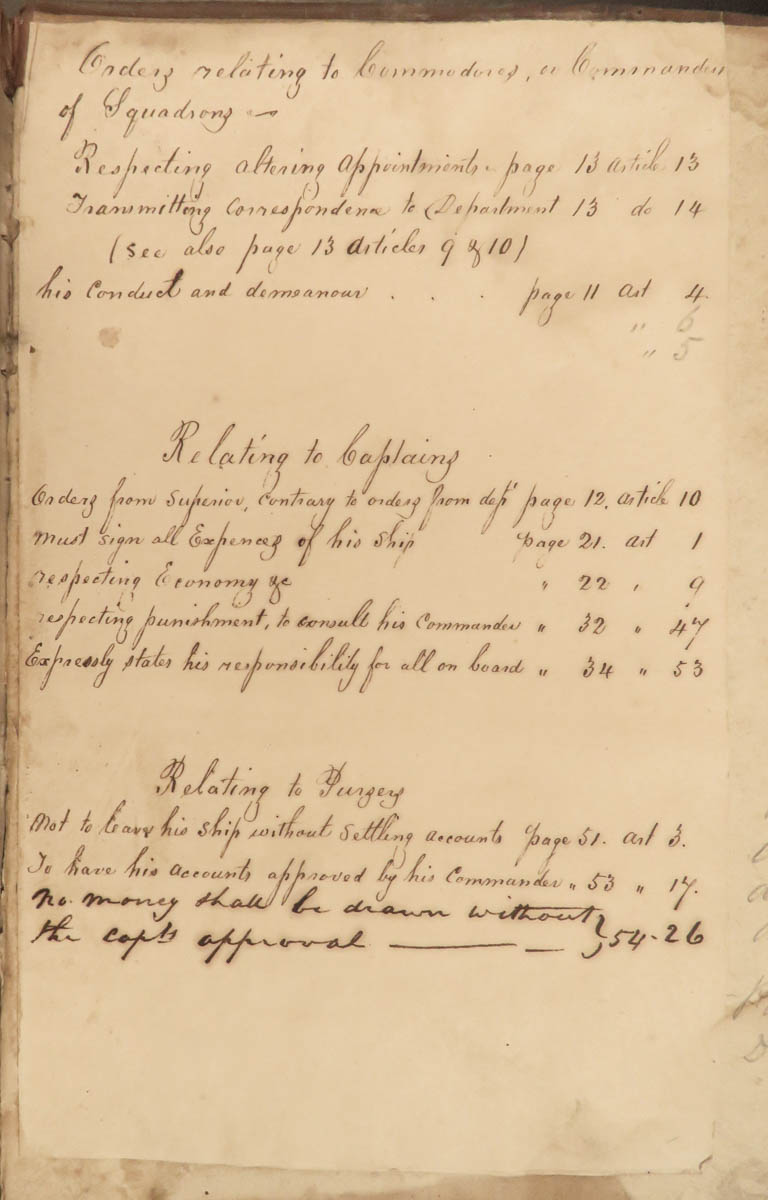 Orders relating to Commodores, or Commanders
of Squadrons —
Respecting altering Appointments. page 13 article 13
Transmitting Correspondence to Department 13 do 14
(See also page 13 Articles 9 & 10)
his Conduct and demeanour . . . page 11 Art 4.
" 6
" 5
Relating to Captains
Orders from Superior, contrary to orders from dept page 12. article 10
Must sign all Expences of his Ship page 21. art 1
respecting Economy &c " 22 " 9
respecting punishment, to consult his Commander " 32 " 47
Expressly states his responsibility for all on board " 34 " 53
Relating to Pursers
Not to leave his ship without settling accounts page 51. art 3.
To have his accounts approved by his Commander " 53 " 17.
no money shall be drawn without
the capts approval — — } 54 - 26